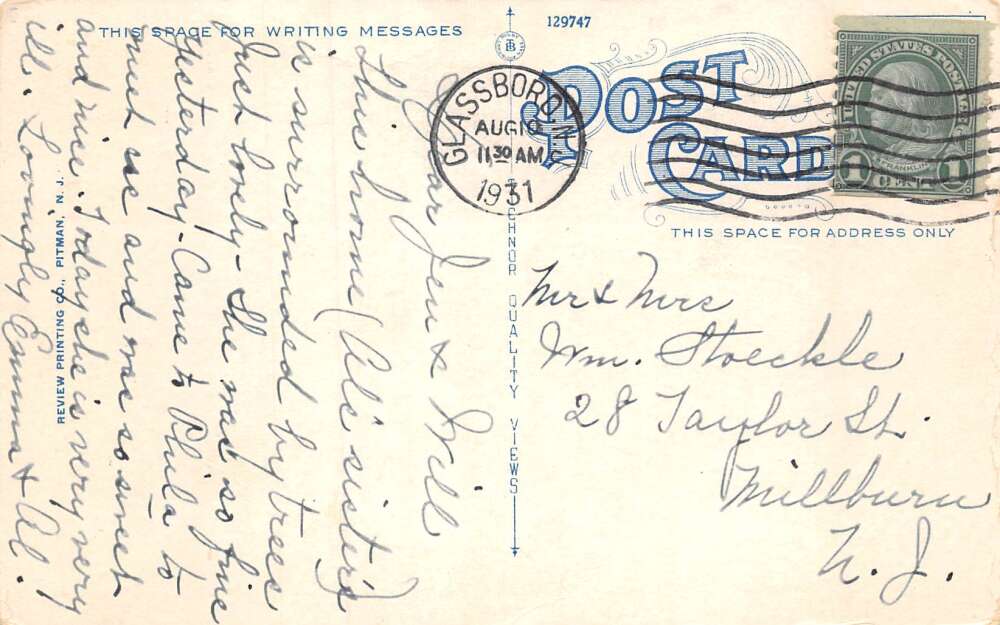 THIS SPACE FOR WRITING MESSAGES
129747
POST
CARD
THIS SPACE FOR ADDRESS ONLY
GLASSBORO, N.J.
AUG 10
11 30 AM
1931
UNITED STATES POSTAGE
FRANKLIN
1 CENT 1
TB
TICHNOR QUALITY VIEWS
REVIEW PRINTING CO., PITMAN, N. J.
Dear Jen & Will
This home (Al's sister's)
is surrounded by trees
Just lovely - She was so fine
yesterday - Came to Phila to
meet me and was so sweet
and nice. Today she is very very
ill. Lovingly Emma & Al.
Mr & Mrs
Wm. Stoeckle
28 Taylor St.
Millburn
N. J.